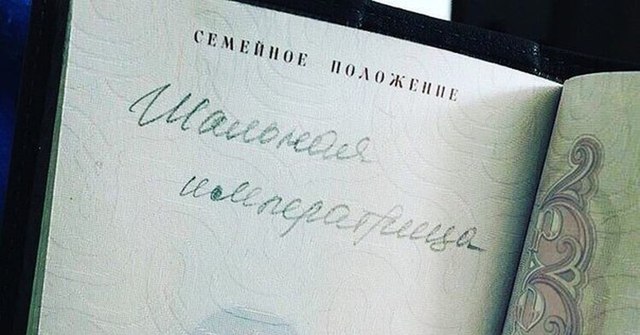 СЕМЕЙНОЕ ПОЛОЖЕНИЕ
Шальная
императрица